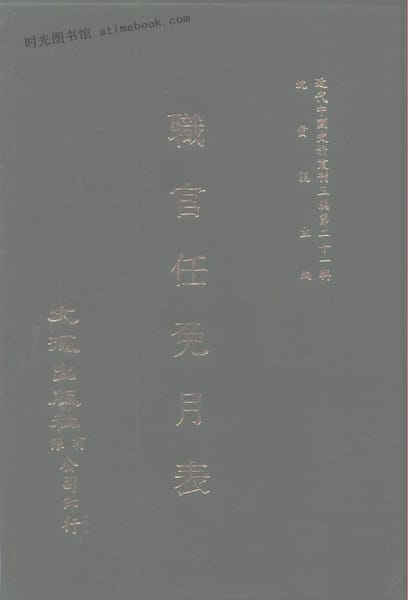 时光图书馆 atimebook.com
近代中國史料叢刊三編第二十一輯
沈雲龍主編
職官任免月表
文海出版社有限公司印行